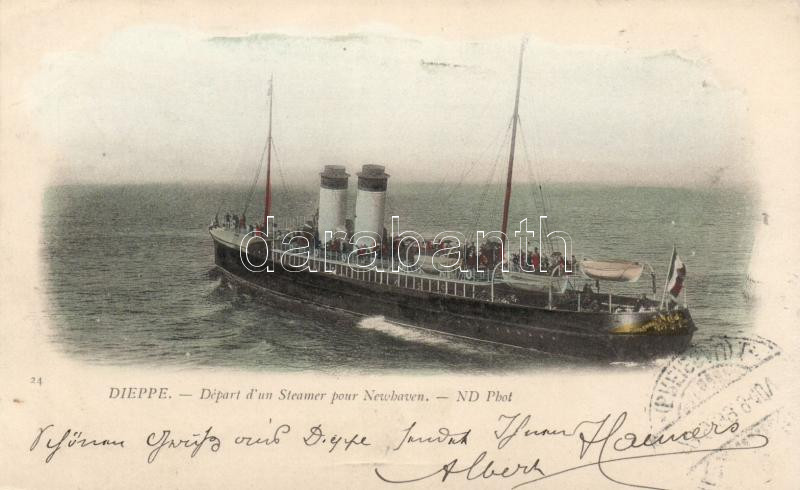 darabanth
24
DIEPPE. — Départ d'un Steamer pour Newhaven. — ND Phot
Schönen Gruß aus Dieppe sendet Ihnen
Albert